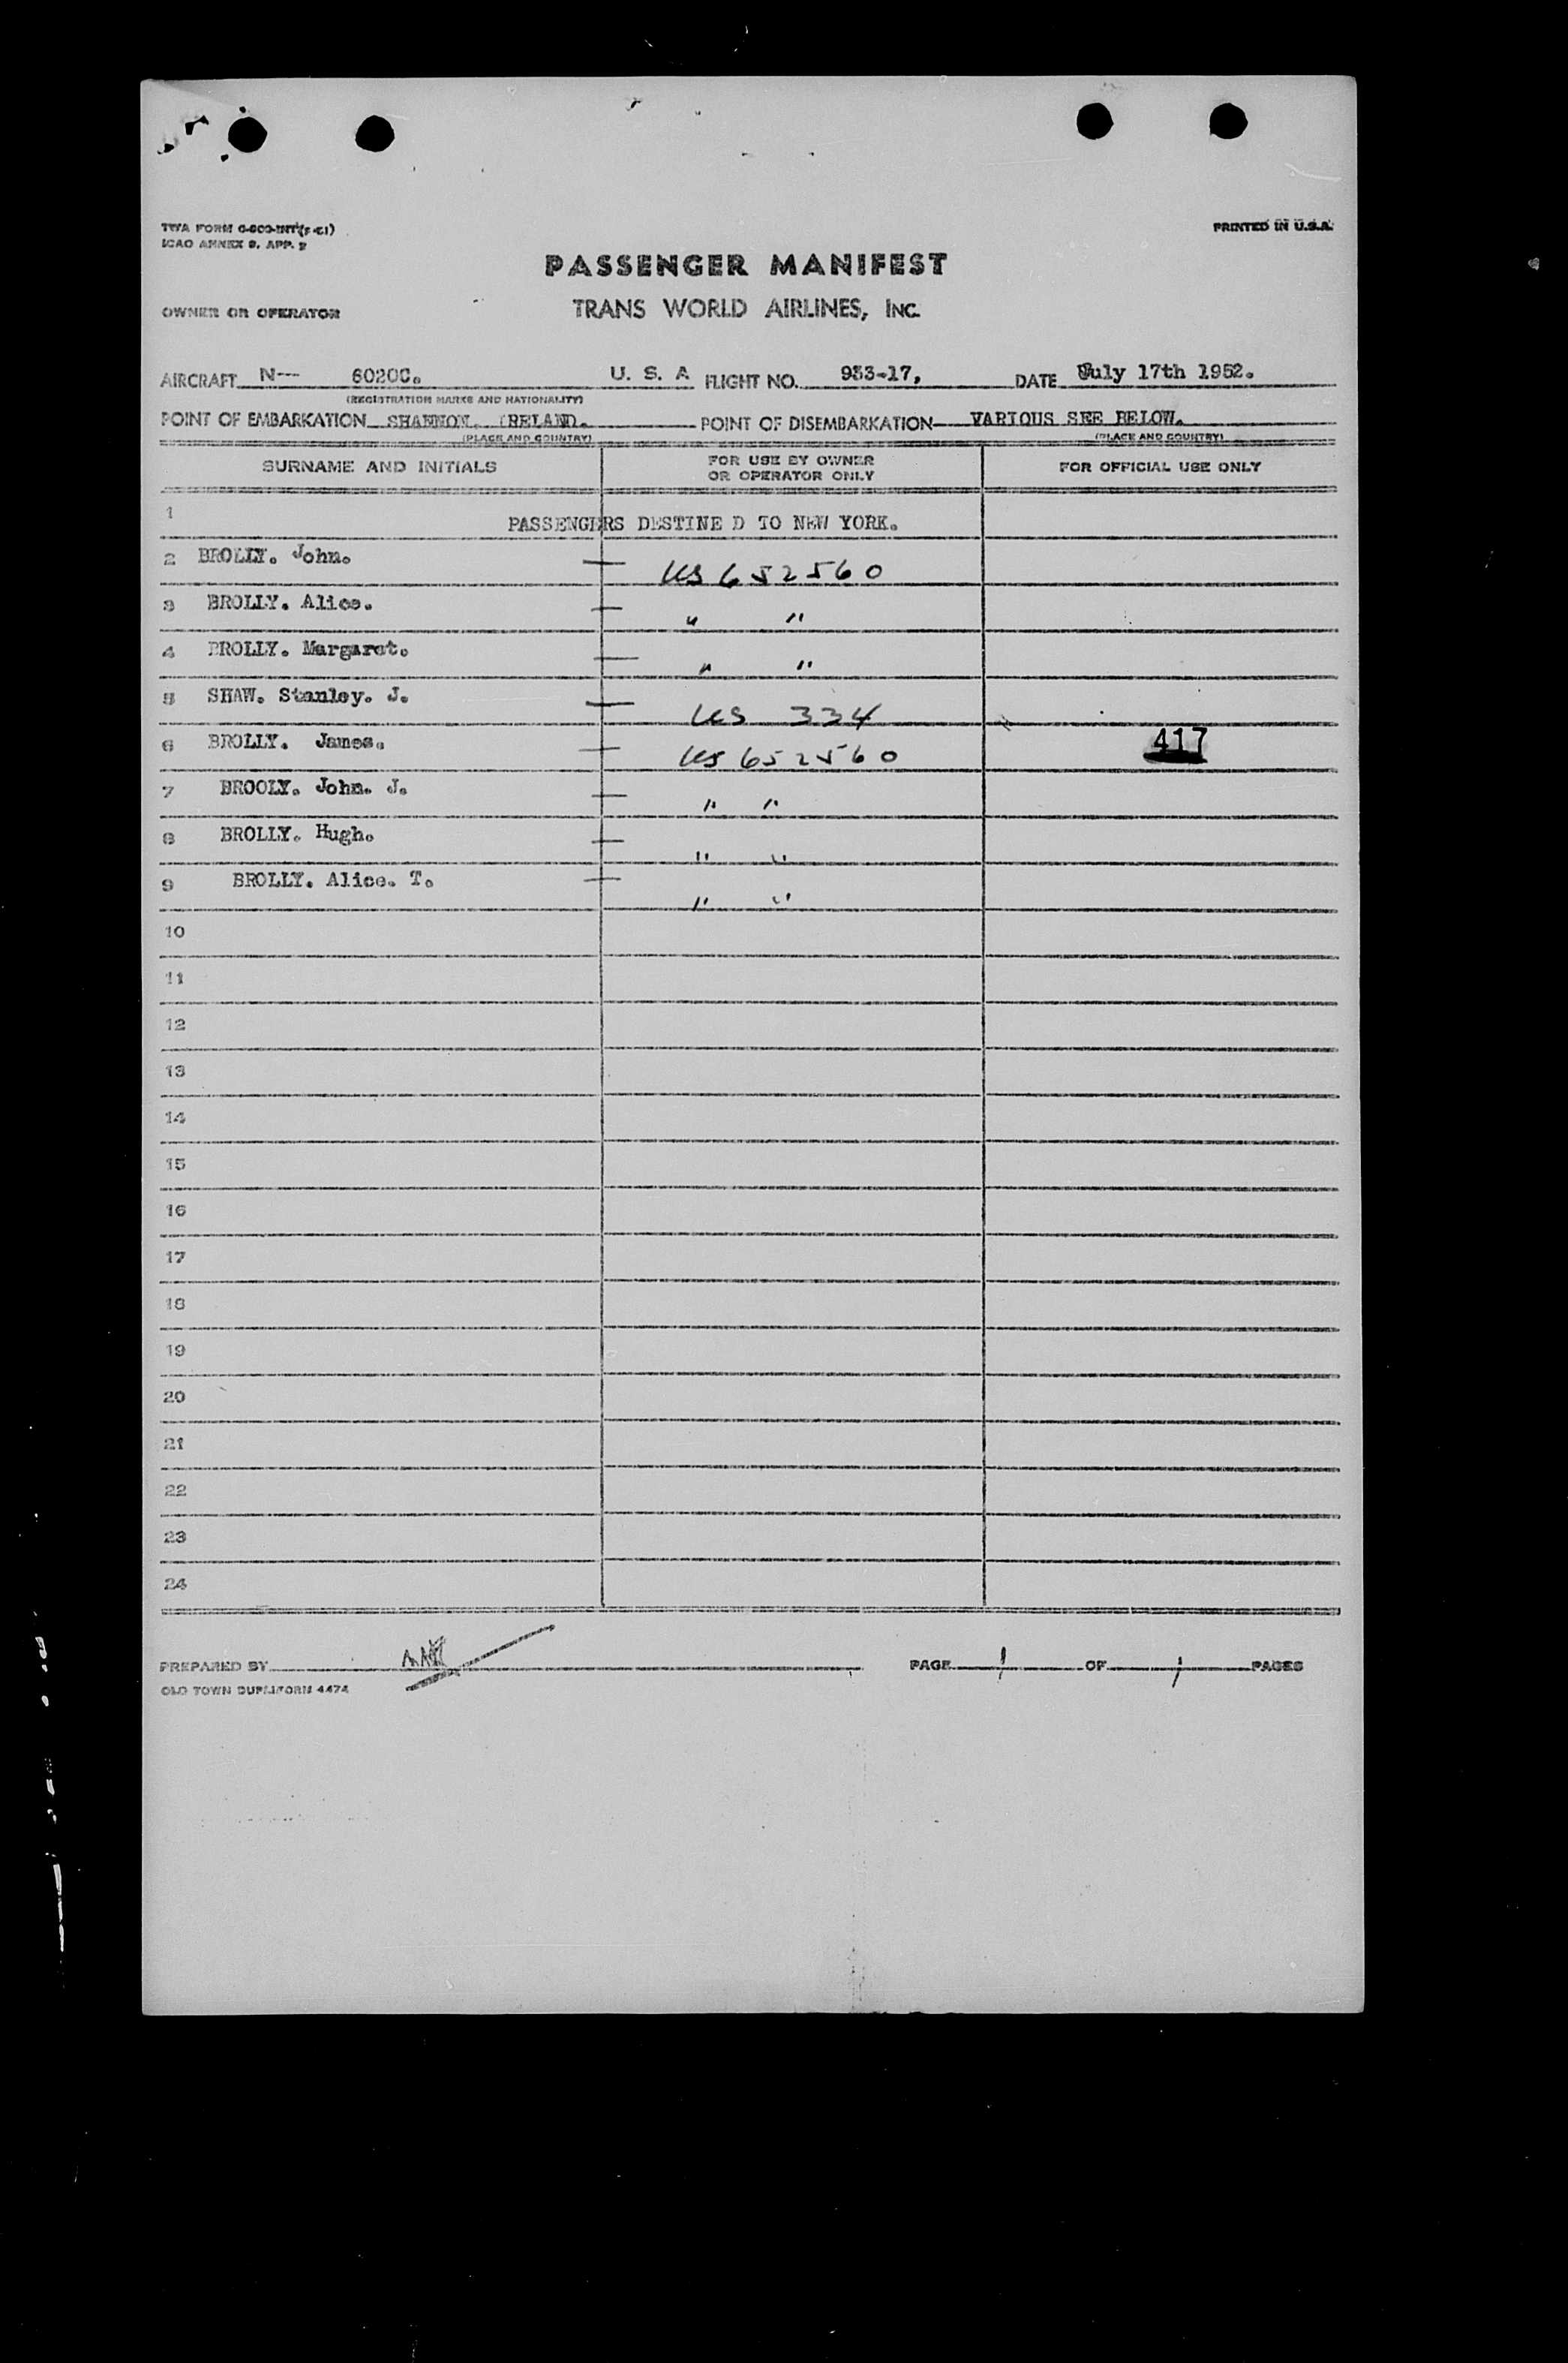 TWA FORM
ICAO ANNEX 9, APP. 2
PRINTED IN U.S.A.
PASSENGER MANIFEST
OWNER OR OPERATOR TRANS WORLD AIRLINES, INC.
AIRCRAFT N-- 6020C. U. S. A FLIGHT NO. 953-17, DATE July 17th 1952.
(REGISTRATION MARKS AND NATIONALITY)
POINT OF EMBARKATION SHANNON. IRELAND. POINT OF DISEMBARKATION VARIOUS SEE BELOW.
(PLACE AND COUNTRY) (PLACE AND COUNTRY)
SURNAME AND INITIALS FOR USE BY OWNER OR OPERATOR ONLY FOR OFFICIAL USE ONLY
1 PASSENGERS DESTINE D TO NEW YORK.
2 BROLLY. John. — US 652560
3 BROLLY. Alice. — " "
4 BROLLY. Margaret. — " "
5 SHAW. Stanley. J. — US 334
6 BROLLY. James. — US 652560 417
7 BROOLY. John. J. — " "
8 BROLLY. Hugh. — " "
9 BROLLY. Alice. T. — " "
10
11
12
13
14
15
16
17
18
19
20
21
22
23
24
PREPARED BY PAGE 1 OF 1 PAGES
OLD TOWN DUPLIFORM 4474